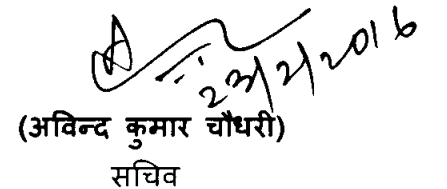 23/2/2016
(अविन्द कुमार चौधरी)
सचिव